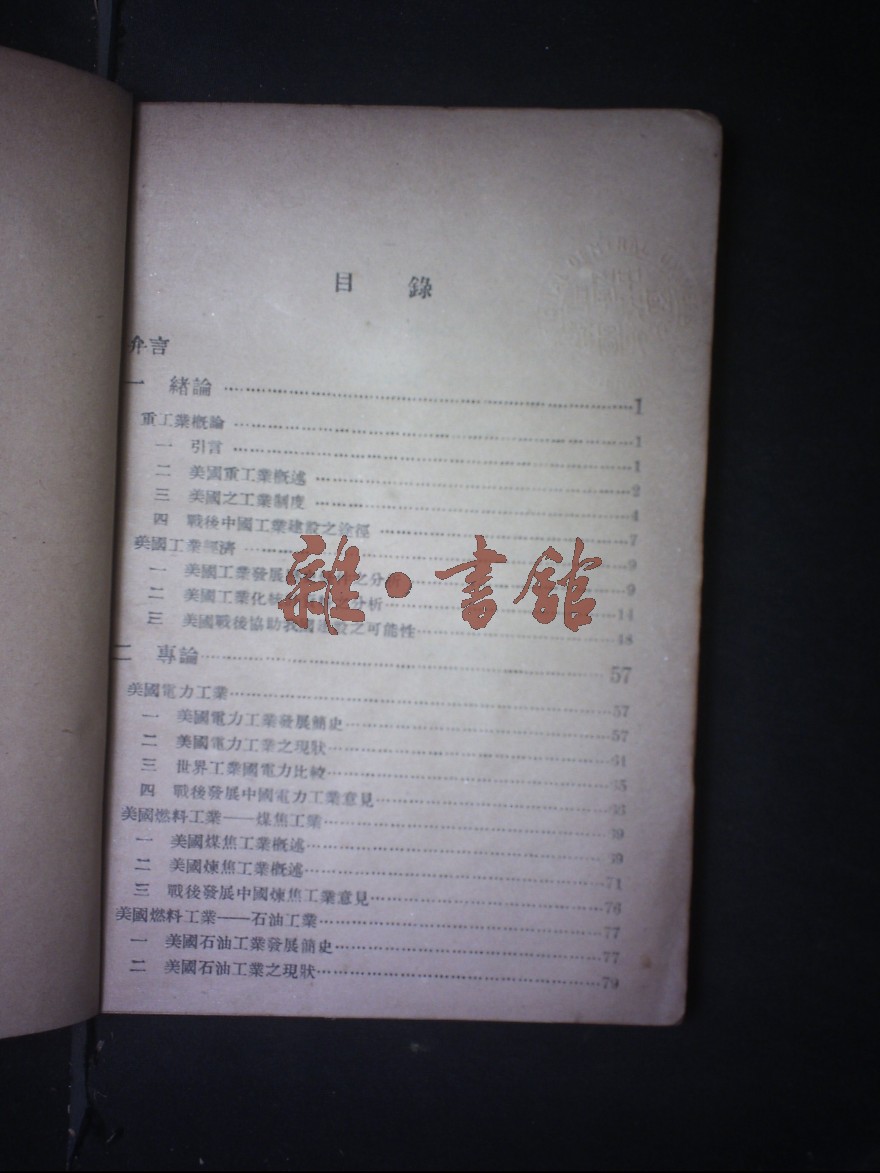 目 錄
弁言
一 緒論 1
重工業概論 1
一 引言 1
二 美國重工業概述 2
三 美國之工業制度 4
四 戰後中國工業建設之途徑 7
美國工業經濟 9
一 美國工業發展 之分析 9
二 美國工業化 分析 14
三 美國戰後協助我國建設之可能性 48
二 專論 57
美國電力工業 57
一 美國電力工業發展簡史 57
二 美國電力工業之現狀 61
三 世界工業國電力比較 65
四 戰後發展中國電力工業意見
美國燃料工業——煤焦工業 69
一 美國煤焦工業概述 69
二 美國煉焦工業概述 71
三 戰後發展中國煉焦工業意見 76
美國燃料工業——石油工業 77
一 美國石油工業發展簡史 77
二 美國石油工業之現狀 79
雜·書館
CENTRAL